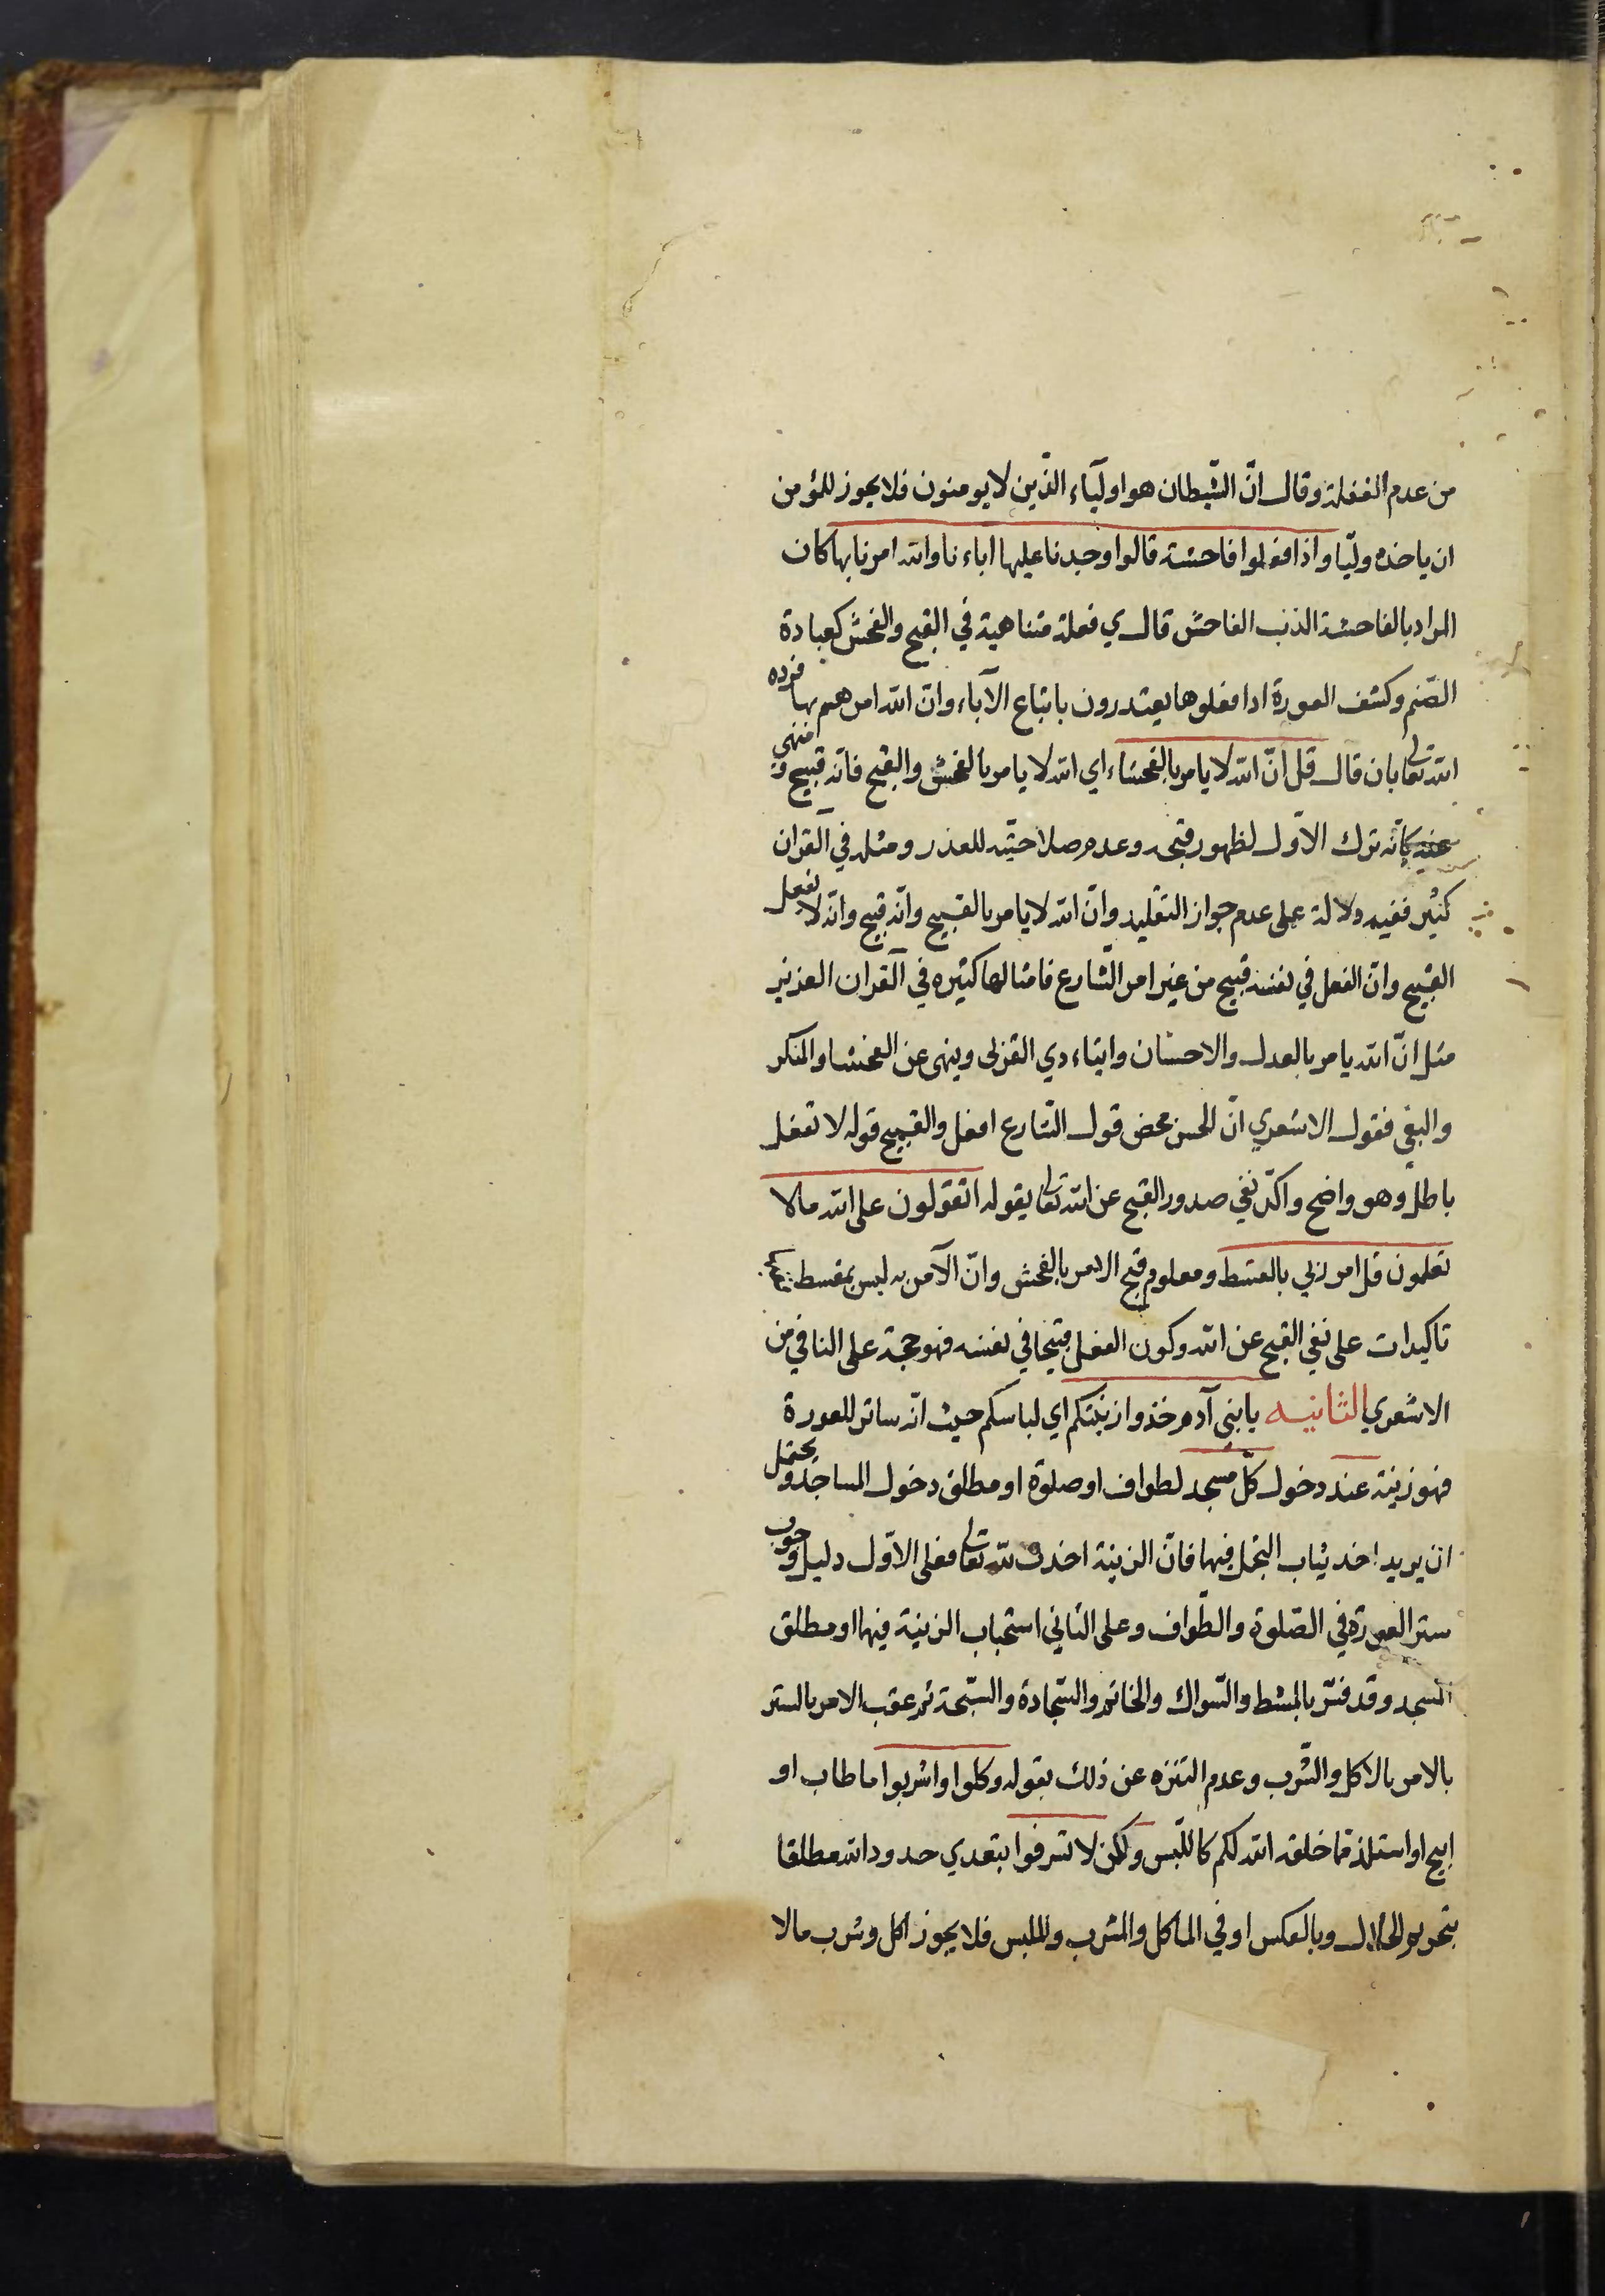 من عدم الغفلة وقال انّ الشّيطان هو اوليآء الذّين لا يومنون فلا يجوز للمؤمن
ان ياخذه وليّا واذا فعلوا فاحشة قالوا وجدنا عليها اباءنا والله امرنا بها كان
المراد بالفاحشة الذنب الفاحش قال ي فعلة متناهية في القبح والفحش كعبادة
الصّنم وكشف العورة اذا فعلوها يعتذرون باتباع الآباء وانّ الله امرهم بها فرده
الله تعالى بان قال قل انّ الله لا يامر بالفحشاء اي الله لا يامر بالفحش والقبح فانه قبيح ومنهي
عنه كانّه ترك الاول لظهور قبحه وعدم صلاحيّته للعذر ومثله في القران
كثير ففيه دلالة على عدم جواز التقليد وانّ الله لا يامر بالقبيح وانّه قبيح وانّه لا يفعل
القبيح وانّ الفعل في نفسه قبيح من غير امر الشّارع فامثالها كثيره في القران العزيز
مثل انّ الله يامر بالعدل والاحسان وايتاء دي القربى وينهى عن الفحشا والمنكر
والبغي فقول الاشعري انّ الحسن محض قول الشّارع افعل والقبيح قوله لا تفعل
باطل وهو واضح واكّد نفي صدور القبح عن الله تعالى بقوله اتقولون على الله مالا
تعلمون قل امر ربي بالقسط ومعلوم قبح الامر بالفحش وانّ الآمر به ليس بمقسط
تاكيدات على نفي القبح عن الله وكون الفعل قبيحا في نفسه فهو حجة على النافي من
الاشعري الثانيه يا بني آدم خذوا زينتكم اي لباسكم حيث انّه ساتر للعورة
فهو زينة عند دخول كلّ مسجد لطواف او صلوة او مطلق دخول المساجد ويحتمل
ان يريد اخذ ثياب التجمل فيها فانّ الزينة اخذت لله تعالى فعلى الاوّل دليل وجوب
ستر العورة في الصّلوة والطّواف وعلى الثاني استحباب الزينة فيها او مطلق
المسجد وقد فسّر بالمشط والسّواك والخاتم والسّجادة والسّبحة ثم عقب الامر بالستر
بالامر بالاكل والشّرب وعدم التنزه عن ذلك بقوله وكلوا واشربوا ما طاب او
ابيح او استلذ مما خلقه الله لكم كاللّبس ولكن لا تسرفوا بتعدي حدود الله مطلقا
بتحريم الحلال وبالعكس او في الماكل والمشرب والملبس فلا يجوز اكل وشرب مالا